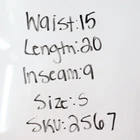 Waist:15
Length:20
Inseam:9
Size:S
SKU:2567